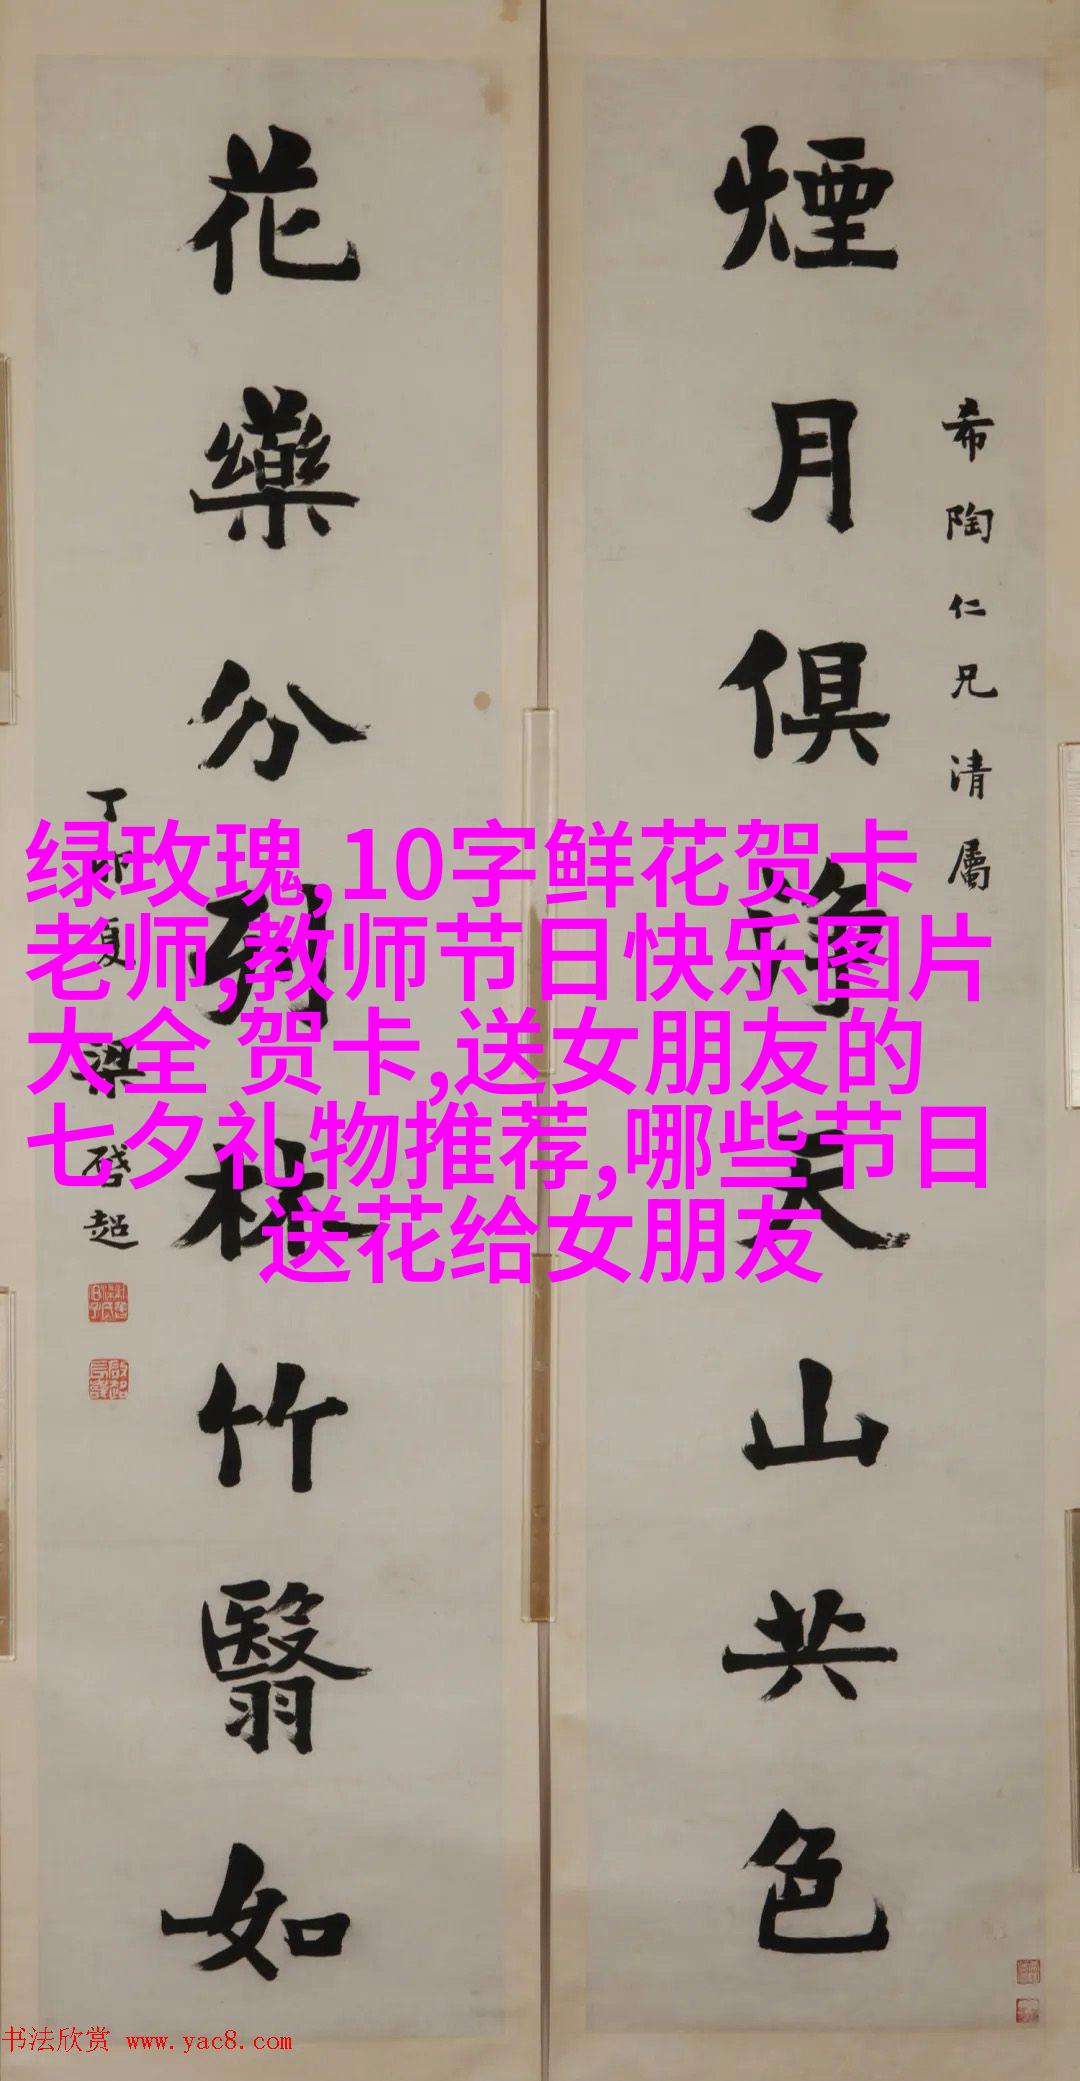 希陶仁兄清屬
煙月俱淨天山共色
花藥分列林竹翳如
丁卯夏梁啓超
绿玫瑰,10字鲜花贺卡
老师,教师节日快乐图片
大全 贺卡,送女朋友的
七夕礼物推荐,哪些节日
送花给女朋友
书法欣赏 www.yac8.com